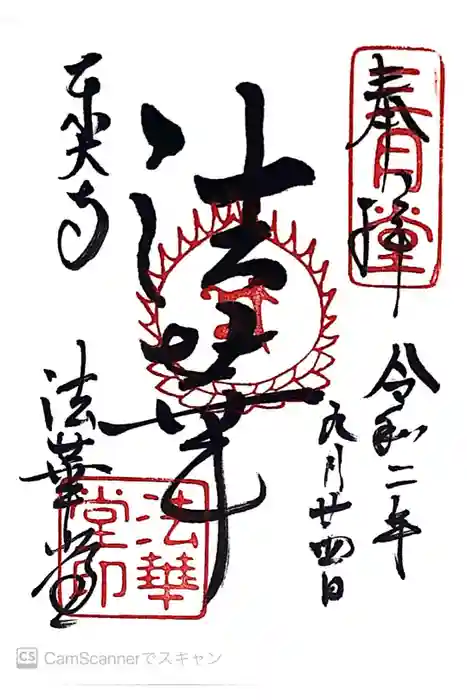 奉拝
三月堂
令和二年
九月廿四日
法華
東大寺
法華堂
法華堂印
CS CamScannerでスキャン